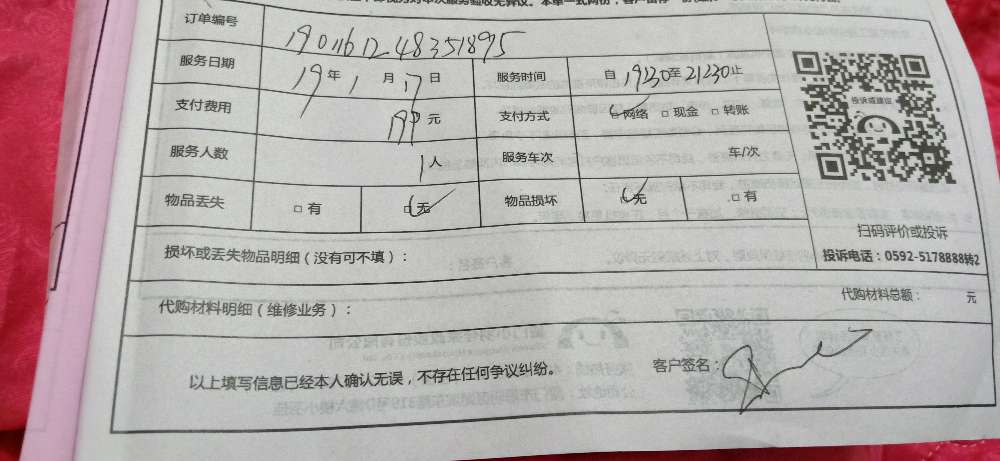 订单编号 1901161248351895
服务日期 19年1月17日 服务时间 自19:30至21:30止
支付费用 199元 支付方式 ☑网络 □现金 □转账
服务人数 1人 服务车次 车/次
物品丢失 □有 ☑无 物品损坏 ☑无 □有
投诉或建议
扫码评价或投诉
投诉电话：0592-5178888转2
损坏或丢失物品明细（没有可不填）：
代购材料明细（维修业务）：
代购材料总额： 元
以上填写信息已经本人确认无误，不存在任何争议纠纷。
客户签名：